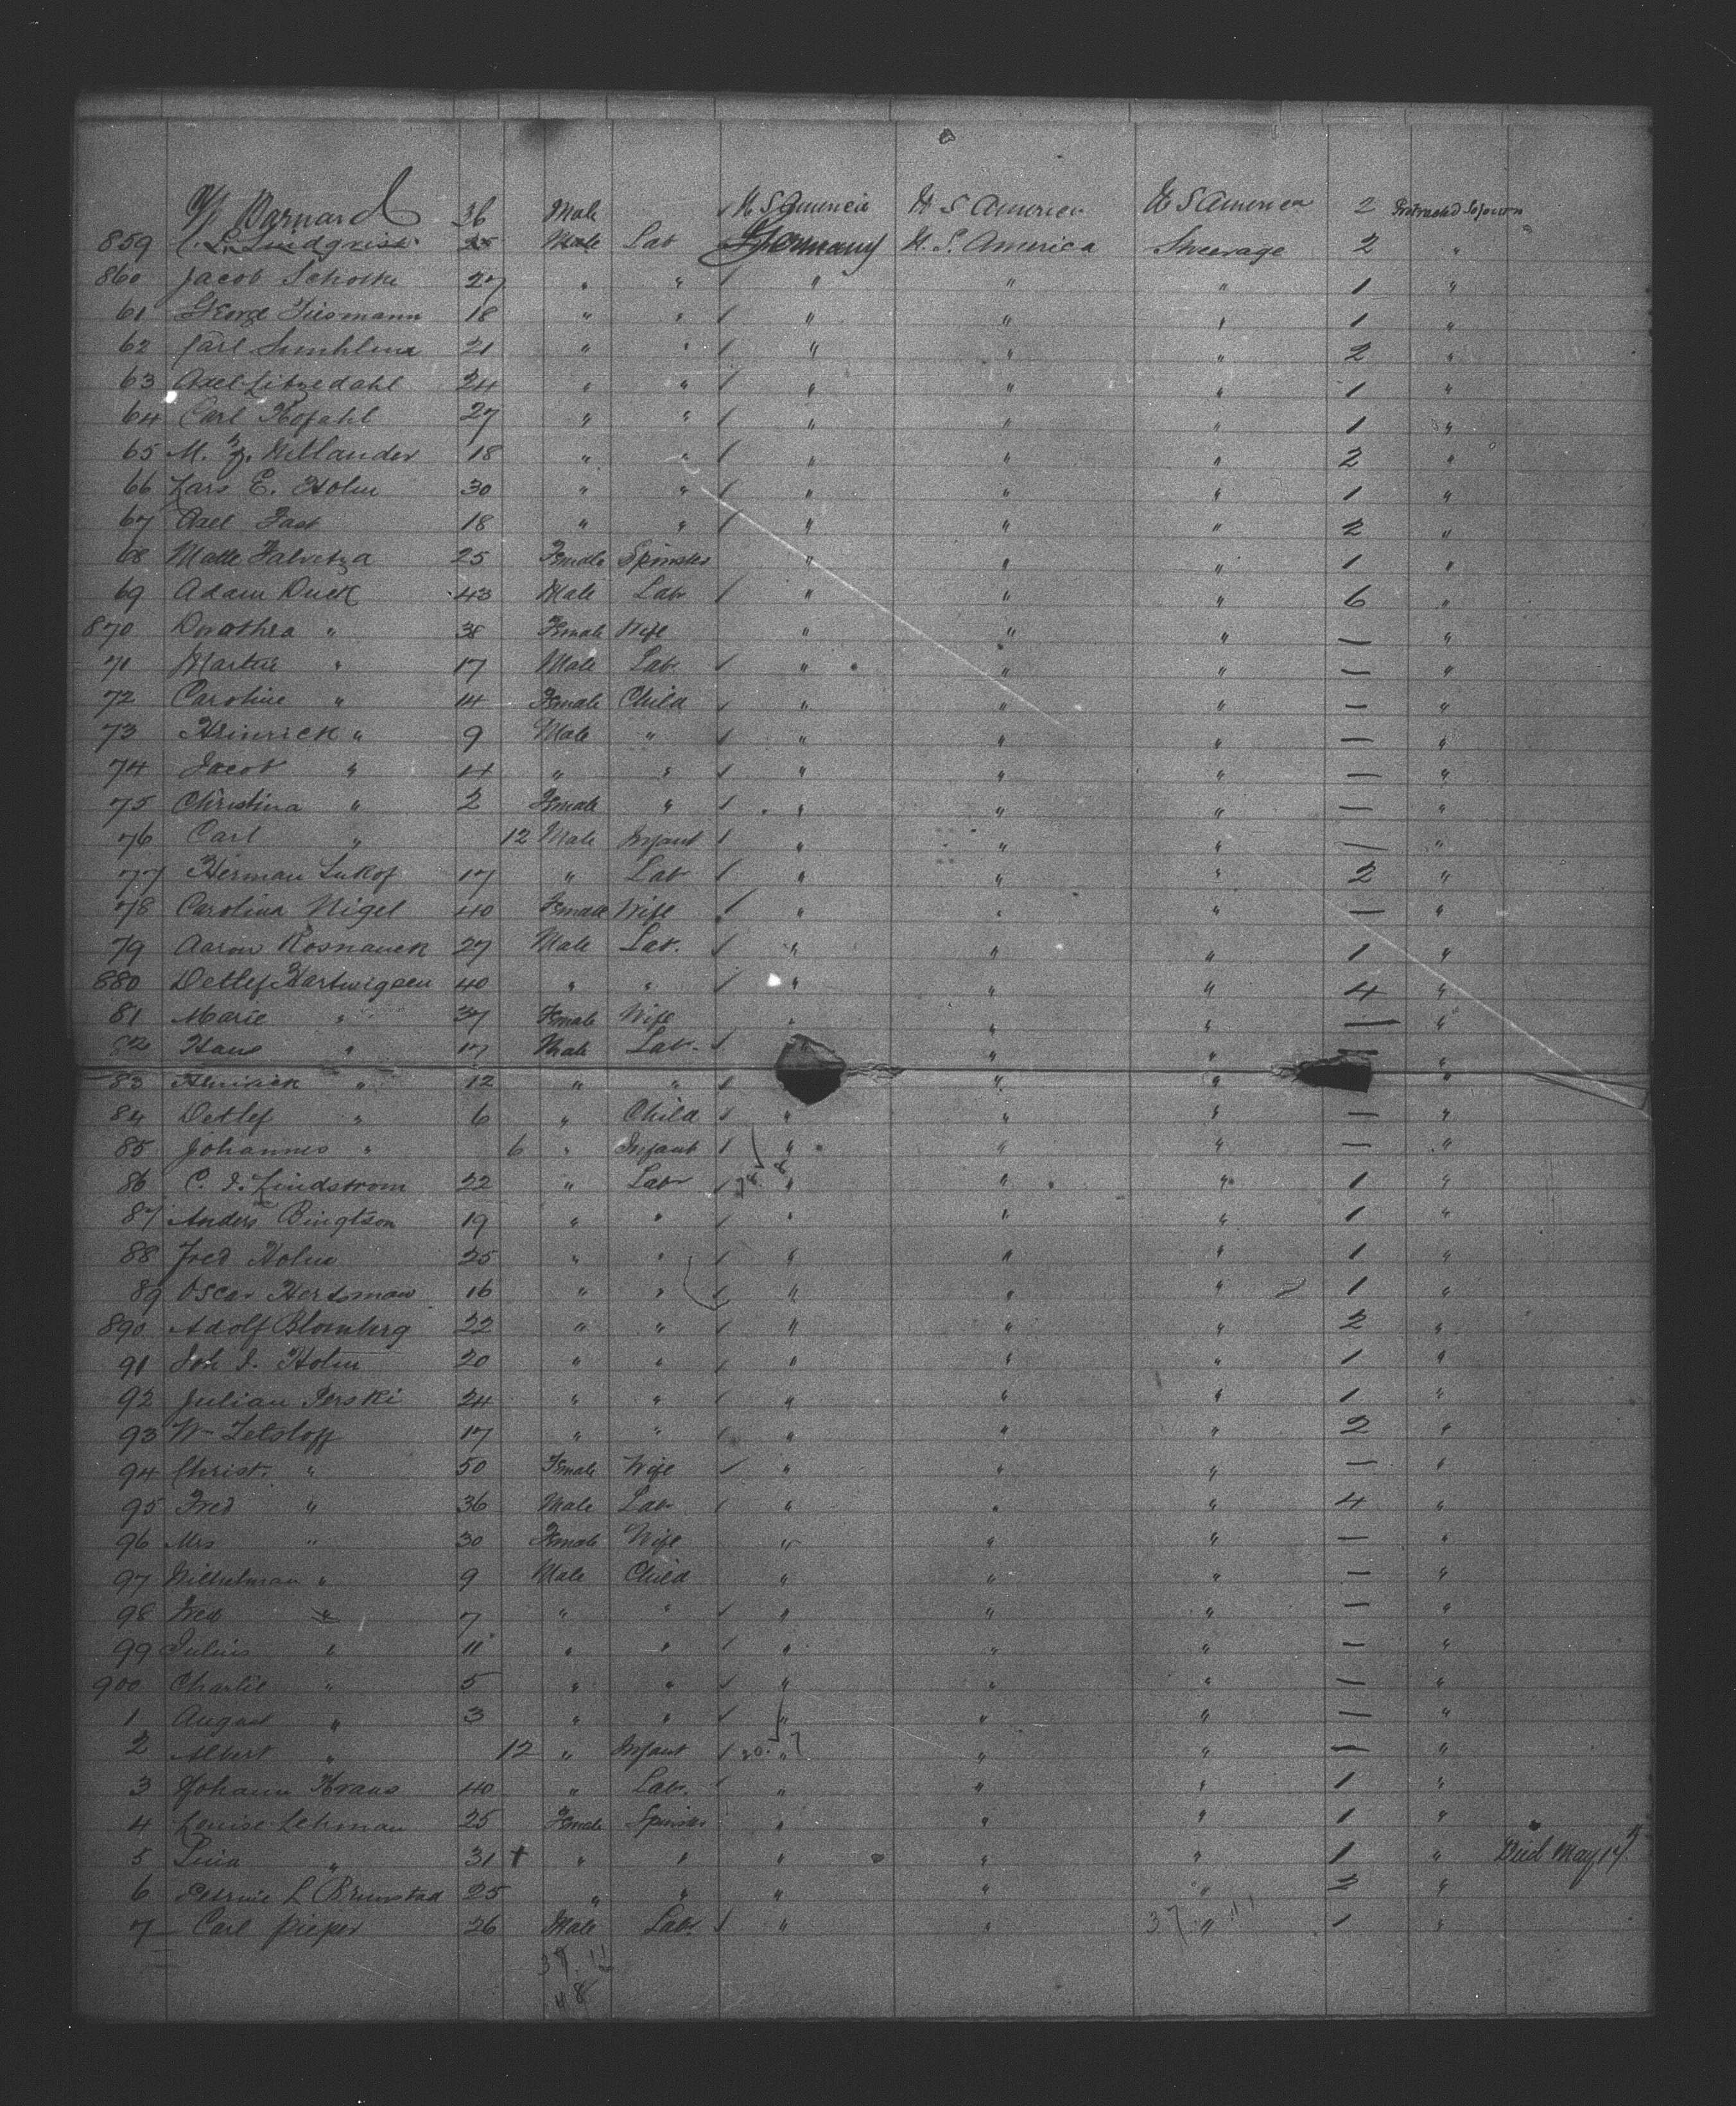 Barnard 36 Male U S America U S America U S America 2 Protracted Sojourn
859 C. L. Lindqvist 25 Male Lab Germany U. S. America Steerage 2 "
860 Jacob 27 " " / " " " 1 "
61 George Tiesmann 18 " " / " " " 1 "
62 Carl 21 " " / " " " 2 "
63 Axel Litzedahl 24 " " / " " " 1 "
64 Carl Kofahl 27 " " / " " " 1 "
65 M. Willander 18 " " / " " " 2 "
66 Lars E. Holm 30 " " / " " " 1 "
67 Axel Fast 18 " " / " " " 2 "
68 Falvetza 25 Female Spinster " " " 1 "
69 Adam Duck 43 Male Lab / " " " 6 "
870 Dorothea " 38 Female Wife " " " — "
71 Martin " 17 Male Lab. / " " " — "
72 Caroline " 14 Female Child / " " " — "
73 Heinrick " 9 Male " / " " " — "
74 Jacob " 4 " " / " " " — "
75 Christina " 2 Female " / " " " — "
76 Carl " 12 Male Infant / " " " — "
77 Herman Lukof 17 " Lab / " " " 2 "
78 Carolina Nigel 40 Female Wife / " " " — "
79 Aaron Rosnauek 27 Male Lab. / " " " 1 "
880 Detlef Hartwigsen 40 " " / " " " 4 "
81 Marie " 37 Female Wife " " " — "
82 Hans " 17 Male Lab. / " " — "
83 Heinrick " 12 " " / " " "
84 Detlef " 6 " Child / " " " — "
85 Johannes " 6 " Infant / " " " — "
86 C. J. Lindstrom 22 " Lab / " " " 1 "
87 Anders Bingtson 19 " " / " " " 1 "
88 Fred Holm 25 " " / " " " 1 "
89 Oscar Hertsman 16 " " / " " " 1 "
890 Adolf Blomberg 22 " " / " " " 2 "
91 Joh J. Holm 20 " " / " " " 1 "
92 Julian Perski 24 " " / " " " 1 "
93 Wm Tetsloff 17 " " / " " " 2 "
94 Christ. " 50 Female Wife / " " " — "
95 Fred " 36 Male Lab / " " " 4 "
96 Mrs " 30 Female Wife " " " — "
97 Wilhelman " 9 Male Child " " " — "
98 Fred " 7 " " / " " " — "
99 Julius " 11 " " / " " " — "
900 Charlie " 5 " " / " " " — "
1 August " 3 " " / " " " — "
2 Albert " 12 " Infant / 20. 7 " " " — "
3 Johann Kraus 40 " Lab. / " " " 1 "
4 Louise Lehman 25 Female Spinster " " " 1 "
5 Lina " 31 + " " " " " 1 " Died May 14
6 L Brunstad 25 " " " " " 2 "
7 Carl Pieper 26 Male Lab. / " " 37 " 11 1 "
37. 11
48